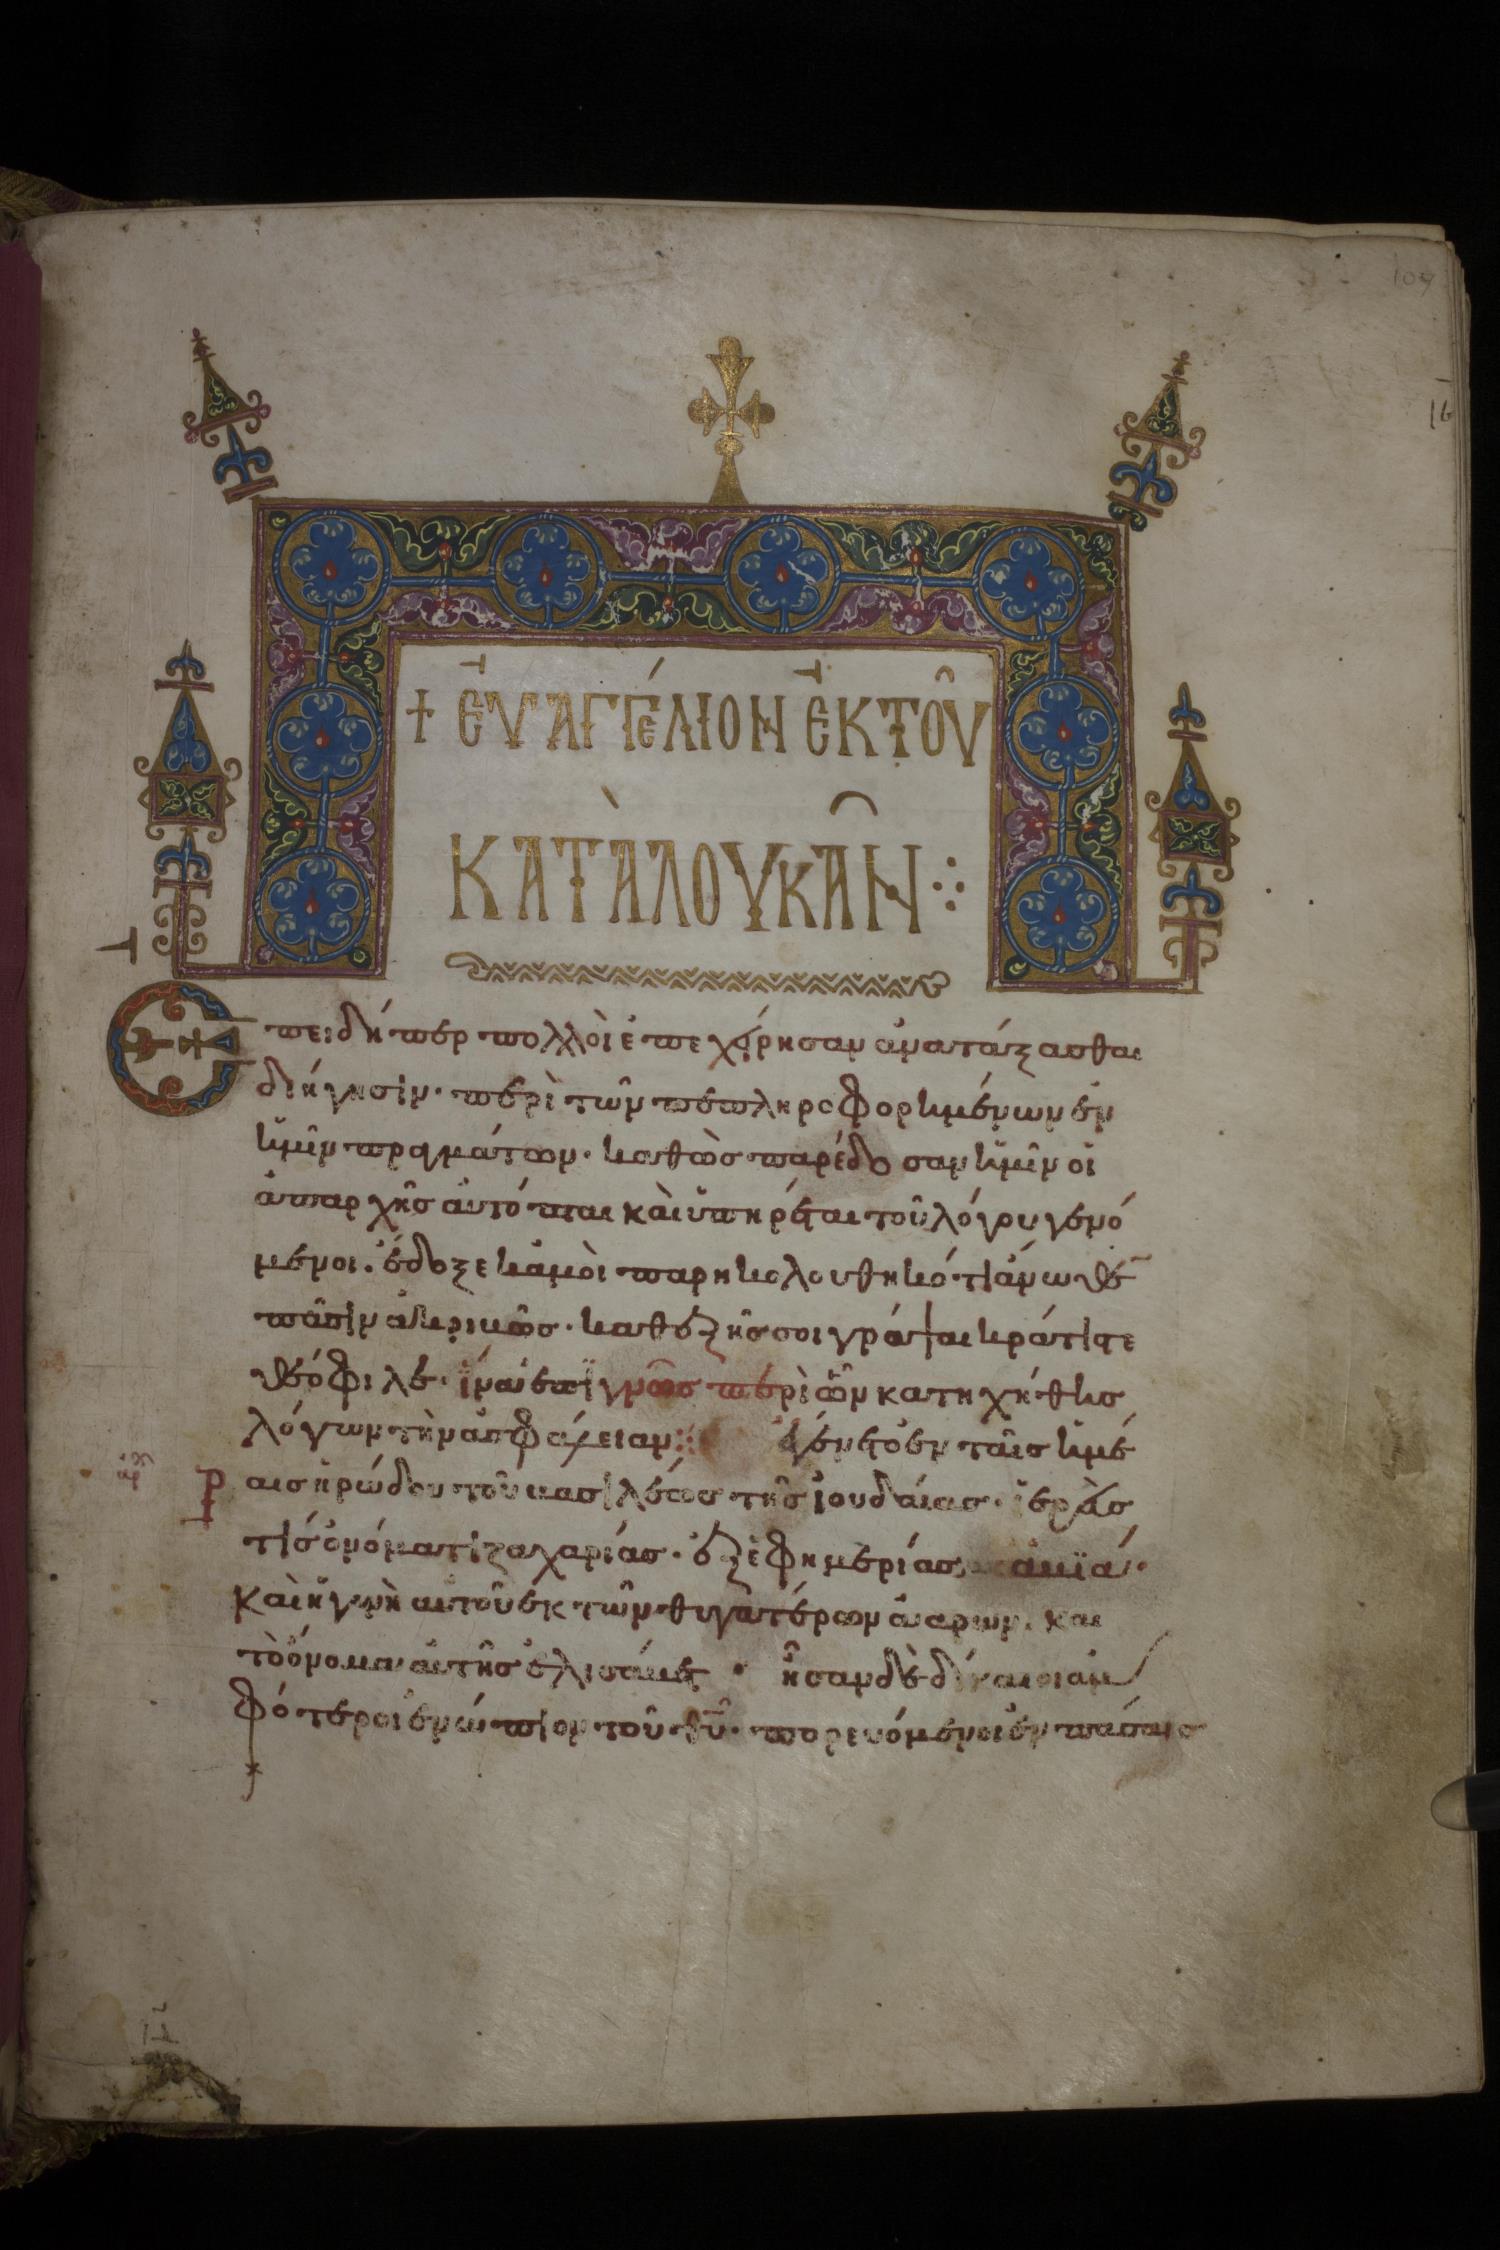 109
16
+ ἐυαγγέλιον ἐκ τοῦ
κατὰ λουκᾶν ⁘
Ἐπειδήπερ πολλοὶ ἐπεχείρησαν ἀνατάξασθαι
διήγησιν· περὶ τῶν πεπληροφορημένων ἐν
ἡμῖν πραγμάτων· καθὼς παρέδοσαν ἡμῖν οἱ
ἀπαρχῆς αὐτόπται καὶ ὑπηρέται τοῦ λόγου γενό
μενοι. ἔδοξε κἀμοὶ παρηκολουθηκότι ἄνωθεν
πᾶσιν ἀκριβῶς· καθεξῆς σοι γράψαι κράτιστε
θεόφιλε· ἵνα ἐπιγνῶς περὶ ὧν κατηχήθης
λόγων τὴν ἀσφάλειαν ⁘ ἐγένετο ἐν ταῖς ἡμέ
ραις ἡρώδου τοῦ βασιλέως τῆς ἰουδαίας· ἱερεύς
τίς ὀνόματι ζαχαρίας· ἐξ ἐφημερίας ἀβιά·
καὶ ἡ γυνὴ αὐτοῦ ἐκ τῶν θυγατέρων ἀαρων. και
τὸ ὄνομα αὐτῆς ἐλισάβετ · ἦσαν δὲ δίκαιοι ἀμ
φότεροι ἐνώπιον τοῦ θῦ· πορευόμενοι ἐν πάσαις